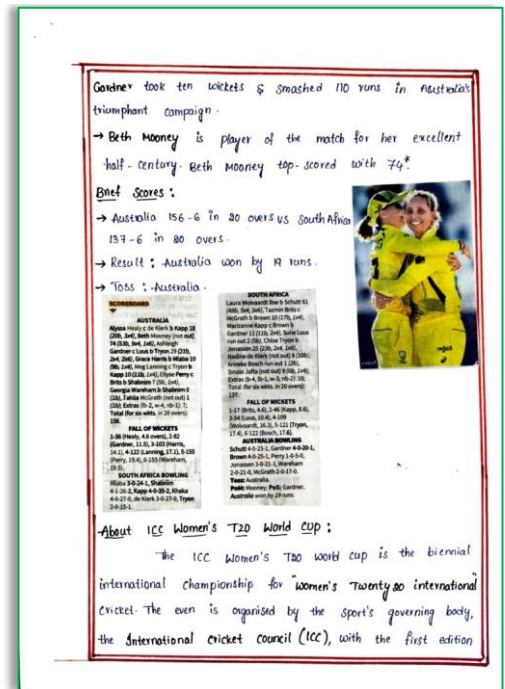 Gardner took ten wickets & smashed 110 runs in Australia's
triumphant campaign.
→ Beth Mooney is player of the match for her excellent
half-century. Beth Mooney top-scored with 74*.
Brief Scores :
→ Australia 156-6 in 20 overs vs South Africa
137-6 in 20 overs.
→ Result : Australia won by 19 runs.
→ Toss : Australia.
SCOREBOARD
AUSTRALIA
Alyssa Healy c de Klerk b Kapp 18
(20b, 3x4), Beth Mooney (not out)
74 (53b, 9x4, 1x6), Ashleigh
Gardner c Luus b Tryon 29 (21b,
2x4, 2x6), Grace Harris b Mlaba 10
(9b, 1x4), Meg Lanning c Tryon b
Kapp 10 (11b, 1x4), Ellyse Perry c
Brits b Shabnim 7 (5b, 1x4),
Georgia Wareham b Shabnim 0
(1b), Tahlia McGrath (not out) 1
(1b); Extras (lb-2, w-4, nb-1): 7;
Total (for six wkts. in 20 overs):
156.
FALL OF WICKETS
1-36 (Healy, 4.6 overs), 2-82
(Gardner, 11.5), 3-103 (Harris,
14.1), 4-122 (Lanning, 17.1), 5-155
(Perry, 19.4), 6-155 (Wareham,
19.5).
SOUTH AFRICA BOWLING
Mlaba 3-0-24-1, Shabnim
4-1-26-2, Kapp 4-0-35-2, Khaka
4-0-27-0, de Klerk 3-0-27-0, Tryon
2-0-15-1.
SOUTH AFRICA
Laura Wolvaardt lbw b Schutt 61
(48b, 5x4, 3x6), Tazmin Brits c
McGrath b Brown 10 (17b, 1x4),
Marizanne Kapp c Brown b
Gardner 11 (11b, 2x4), Sune Luus
run out 2 (5b), Chloe Tryon b
Jonassen 25 (23b, 2x4, 1x6),
Nadine de Klerk (not out) 8 (10b),
Anneke Bosch run out 1 (2b),
Sinalo Jafta (not out) 9 (6b, 1x4);
Extras (b-4, lb-1, w-3, nb-2): 10;
Total (for six wkts. in 20 overs):
137.
FALL OF WICKETS
1-17 (Brits, 4.6), 2-46 (Kapp, 8.6),
3-54 (Luus, 10.4), 4-109
(Wolvaardt, 16.3), 5-121 (Tryon,
17.4), 6-122 (Bosch, 17.6).
AUSTRALIA BOWLING
Schutt 4-0-23-1, Gardner 4-0-20-1,
Brown 4-0-25-1, Perry 1-0-5-0,
Jonassen 3-0-21-1, Wareham
2-0-21-0, McGrath 2-0-17-0.
Toss: Australia.
PoM: Mooney; PoS: Gardner.
Australia won by 19 runs.
About ICC Women's T20 World Cup :
The ICC Women's T20 world cup is the biennial
international championship for "women's Twenty20 international"
Cricket. The even is organised by the sport's governing body,
the International cricket council (ICC), with the first edition